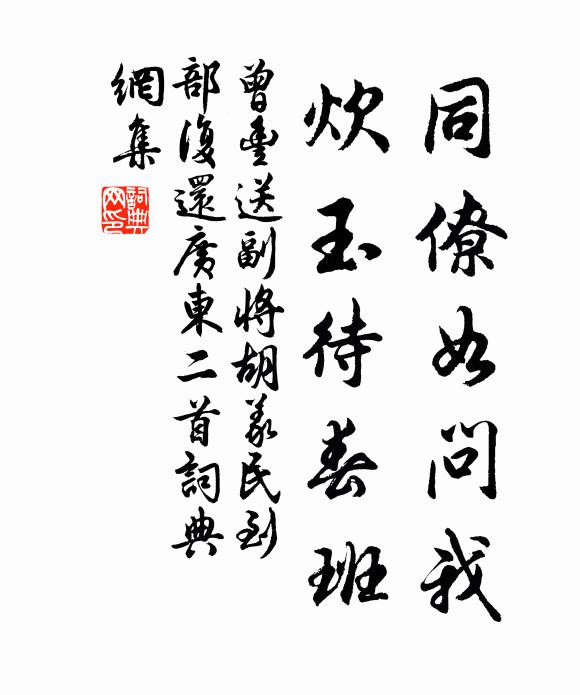 同僚如問我
炊玉待春班
曾豐送副將胡義民到
部復還廣東二首詞典
網集
詞典
网印